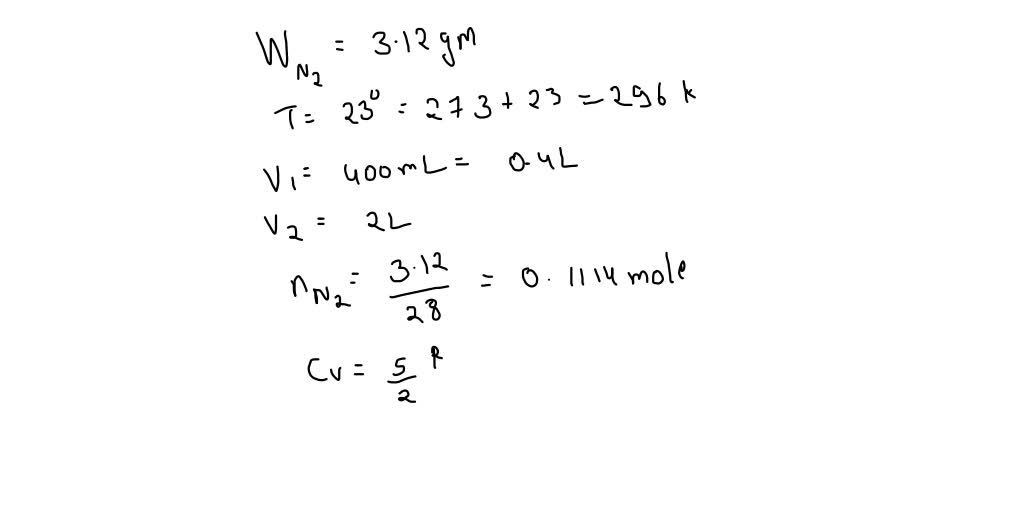 W_N2 = 3.12 gm
T = 23° = 273 + 23 = 296 k
V1 = 400 mL = 0.4L
V2 = 2L
n_N2 = 3.12/28 = 0.1114 mole
Cv = 5/2 R